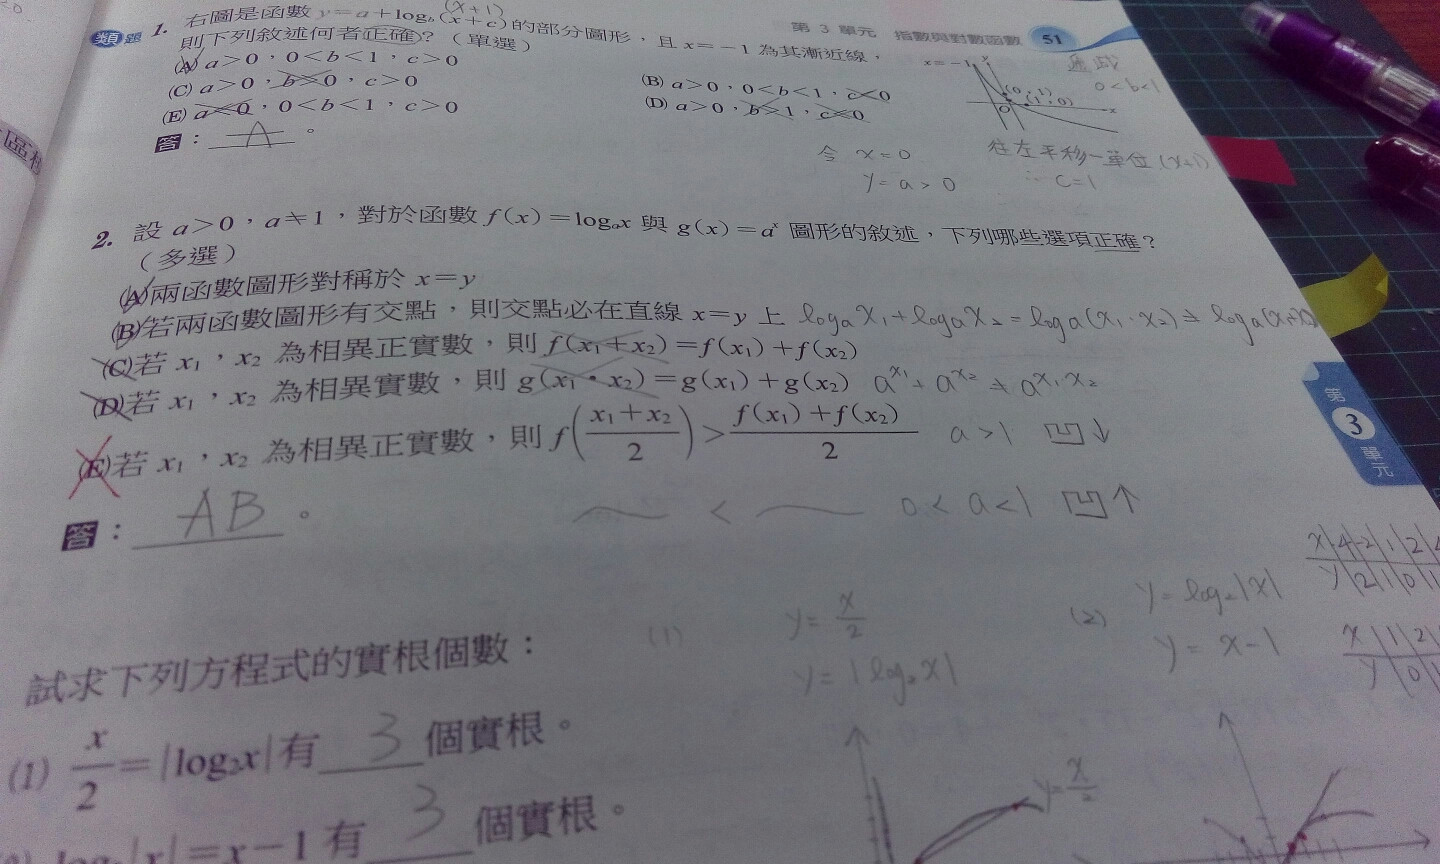 第 3 單元 指數與對數函數 51
類題 1. 右圖是函數 y=a+log_b(x+c) 的部分圖形，且 x=−1 為其漸近線，
(x+1)
則下列敘述何者正確？（單選）
(A) a>0，0<b<1，c>0
(B) a>0，0<b<1，c<0
(C) a>0，b>0，c>0
(D) a>0，b>1，c<0
(E) a<0，0<b<1，c>0
答：A。
x=−1
y
(0, 1)
(1, 0)
O
x
0<b<1
令 x=0
y=a>0
往左平移一單位(x+1)
∴ c=1
2. 設 a>0，a≠1，對於函數 f(x)=log_a x 與 g(x)=a^x 圖形的敘述，下列哪些選項正確？
（多選）
(A)兩函數圖形對稱於 x=y
(B)若兩函數圖形有交點，則交點必在直線 x=y 上
log_a x₁+log_a x₂=log_a(x₁·x₂)≠log_a(x₁+x₂)
(C)若 x₁，x₂ 為相異正實數，則 f(x₁+x₂)=f(x₁)+f(x₂)
(D)若 x₁，x₂ 為相異實數，則 g(x₁·x₂)=g(x₁)+g(x₂) a^x₁+a^x₂≠a^x₁x₂
(E)若 x₁，x₂ 為相異正實數，則 f((x₁+x₂)/2)>(f(x₁)+f(x₂))/2 a>1 凹↓
< 0<a<1 凹↑
答：AB。
第 3 單元
試求下列方程式的實根個數：
(1) x/2=|log₂x|有 3 個實根。
log₂|x|=x−1 有 3 個實根。
(1) y=x/2
y=|log₂x|
(2) y=log₂|x|
y=x−1
x -4 -2 1 2 4
y 2 1 0 1
x 1 2
y 0 1
y=x/2